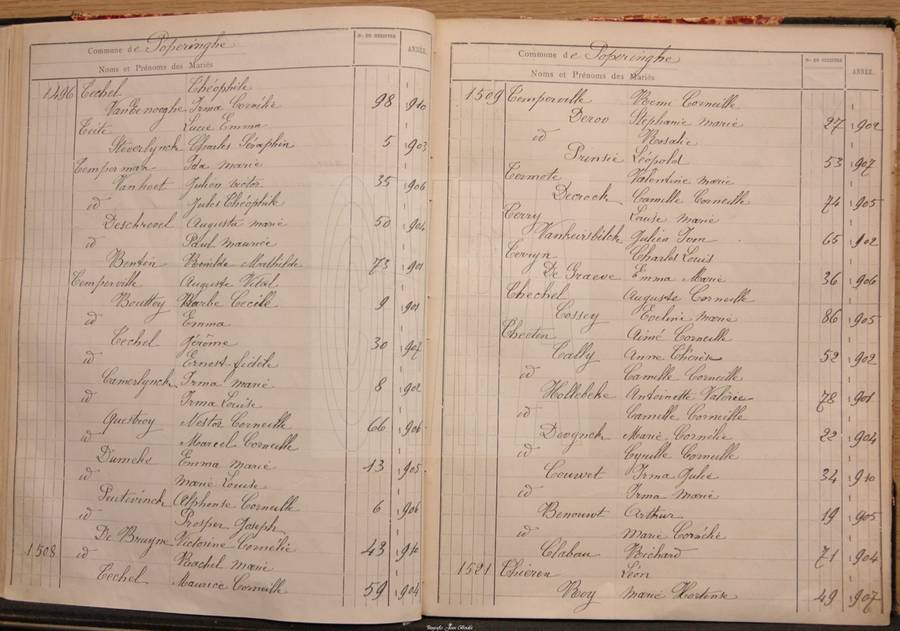 Commune de Poperinghe
Nos DE REGISTRE
ANNÉE.
Noms et Prénoms des Mariés
1.496 Techel Théophile
Vandenoeghe Irma Cornélie 98 1910
Tete Lucie Emma
Steverlynck Charles Séraphin 5 1903
Temperman Ida Marie
Vanhoet Julien Victor 35 1906
id Jules Théophile
Deschrevel Augusta Marie 50 1904
id Paul Maurice
Bentin Romilde Mathilde 73 1901
Temperville Auguste Vital
Bouttey Barbe Cecile 9 1901
id Emma
Techel Jérôme 30 1907
id Ernest fidèle
Camerlynck Irma Marie 8 1902
id Irma Louise
Questroy Nestor Corneille 66 1906
id Marcel Corneille
Dumeks Emma Marie 13 1905
id Marie Louise
Peutevinck Alphonse Corneille 6 1906
id Prosper Joseph
De Bruyne Victorine Cornélie 43 1910
1.508 id Rachel Marie
Techel Maurice Corneille 59 1904
Commune de Poperinghe
Nos DE REGISTRE
ANNÉE.
Noms et Prénoms des Mariés
1509 Temperville Remi Corneille
Deroo Stephanie Marie 27 1902
id Rosalie
Prinsie Léopold 53 1907
Termote Valentine Marie
Decrock Camille Corneille 74 1905
Terry Louise Marie
Vankersbilck Julien Ivon 65 1902
Tervyn Charles Louis
De Graeve Emma Marie 36 1906
Thechel Auguste Corneille
Cossey Eveline Marie 86 1905
Theeten Aimé Corneille
Cally Anne Thérèse 52 1902
id Camille Corneille
Hollebeke Antoinette Valérie 78 1901
id Camille Corneille
Devynck Marie Cornélie 22 1904
id Cyrille Corneille
Couwet Irma Julie 34 1910
id Irma Marie
Benouwt Arthur 19 1905
id Marie Cornélie
Clabau Richard 71 1904
1521 Thieren Léon
Roy Marie Hortense 49 1907